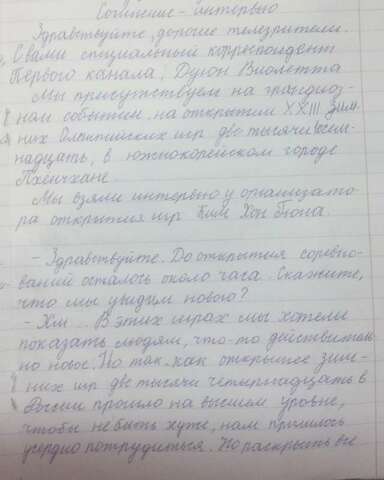 Сочинение - интервью
Здравствуйте, дорогие телезрители.
С вами специальный корреспондент
Первого канала, Дугон Виолетта
Мы присутствуем на грандиоз-
ном событии, на открытии XXIII зим-
них Олимпийских игр две тысячи восем-
надцать, в южнокорейском городе
Пхенчхане.
Мы взяли интервью у организато-
ра открытия игр Ким Хон бюна.
- Здравствуйте. До открытия соревно-
ваний осталось около часа. Скажите,
что мы увидим нового?
- Хм... В этих играх мы хотели
показать людям, что-то действитель
но новое. Но так как открытее зим-
них игр две тысячи четырнадцать в
России прошло на высшем уровне,
чтобы не быть хуже, нам пришлось
усердно потрудиться. Но раскрыть все